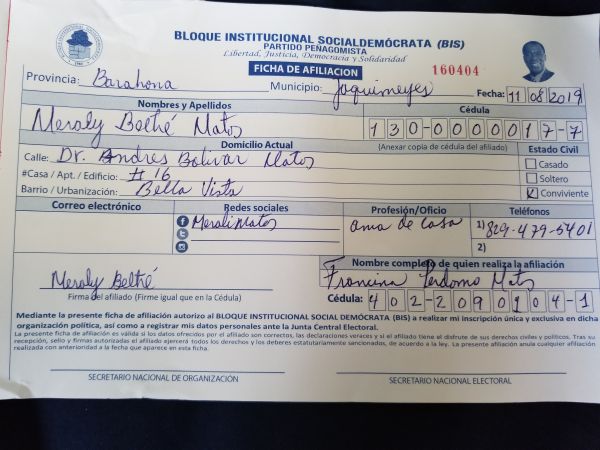 BLOQUE INSTITUCIONAL SOCIALDEMÓCRATA (BIS)
PARTIDO PEÑAGOMISTA
Libertad, Justicia, Democracia y Solidaridad
FICHA DE AFILIACION
160404
Provincia: Barahona Municipio: Jaquimeyes Fecha: 11/08/2019
Nombres y Apellidos Cédula
Meraly Beltré Matos 130-0000017-7
Domicilio Actual (Anexar copia de cédula del afiliado) Estado Civil
Calle: Dr. Andres Bolivar Matos Casado
#Casa / Apt. / Edificio: # 16 Soltero
Barrio / Urbanización: Bella Vista Conviviente
Correo electrónico Redes sociales Profesión/Oficio Teléfonos
MeraliMatos Ama de Casa 1) 829-479-5401
2)
Nombre completo de quien realiza la afiliación
Meraly Beltré Francina Perdomo Matos
Firma del afiliado (Firme igual que en la Cédula) Cédula: 402-2090104-1
Mediante la presente ficha de afiliación autorizo al BLOQUE INSTITUCIONAL SOCIALDEMÓCRATA (BIS) a realizar mi inscripción única y exclusiva en dicha
organización política, así como a registrar mis datos personales ante la Junta Central Electoral.
La presente ficha de afiliación es válida si los datos ofrecidos por el afiliado son correctos, las declaraciones veraces y si el afiliado tiene el disfrute de sus derechos civiles y políticos. Tras su
recepción, sello y firmas autorizadas el afiliado ejercerá todos los derechos y los deberes estatutariamente sancionados, de acuerdo a la ley. La presente afiliación anula cualquier afiliación
realizada con anterioridad a la fecha que aparece en esta ficha.
SECRETARIO NACIONAL DE ORGANIZACIÓN SECRETARIO NACIONAL ELECTORAL